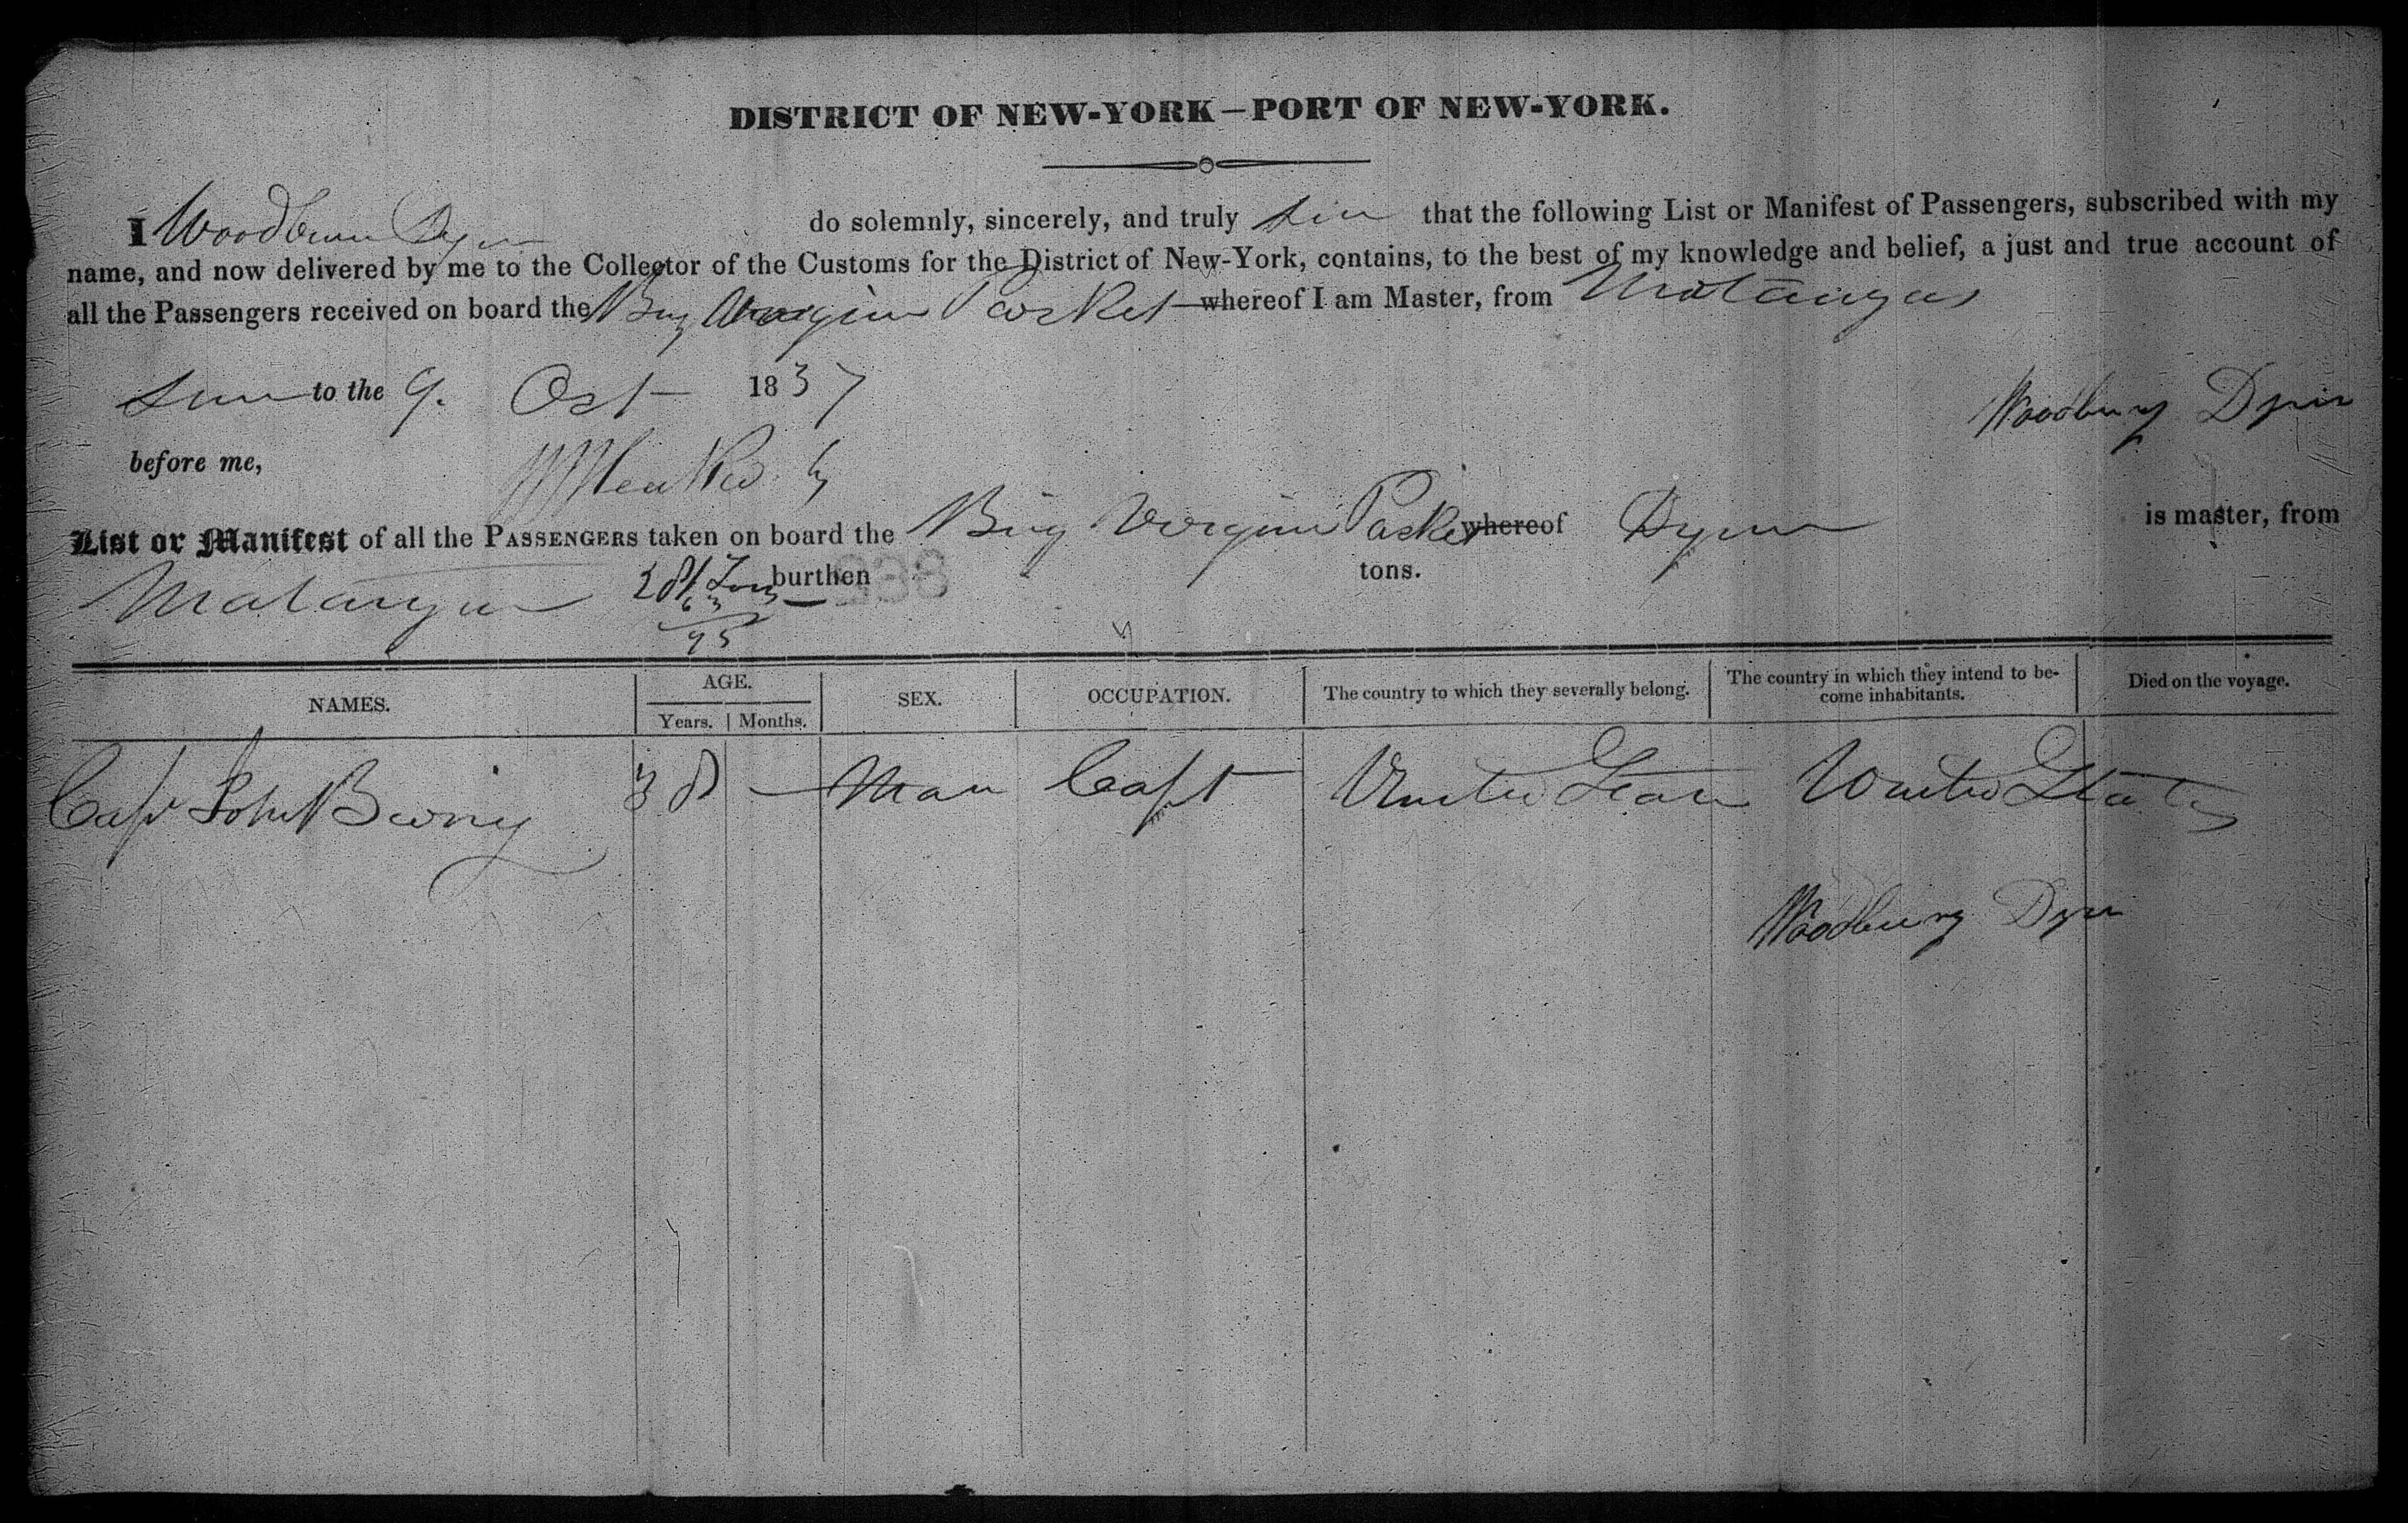 DISTRICT OF NEW-YORK—PORT OF NEW-YORK.
I do solemnly, sincerely, and truly that the following List or Manifest of Passengers, subscribed with my
name, and now delivered by me to the Collector of the Customs for the District of New-York, contains, to the best of my knowledge and belief, a just and true account of
all the Passengers received on board the Brig Packet whereof I am Master, from
to the 9. Oct 1837
Woodbury
before me,
List or Manifest of all the PASSENGERS taken on board the Brig Packet whereof is master, from
burthen tons.
95
NAMES. AGE. Years. Months. SEX. OCCUPATION. The country to which they severally belong. The country in which they intend to become inhabitants. Died on the voyage.
Capt John 38 — Man Capt United States United States
Woodbury